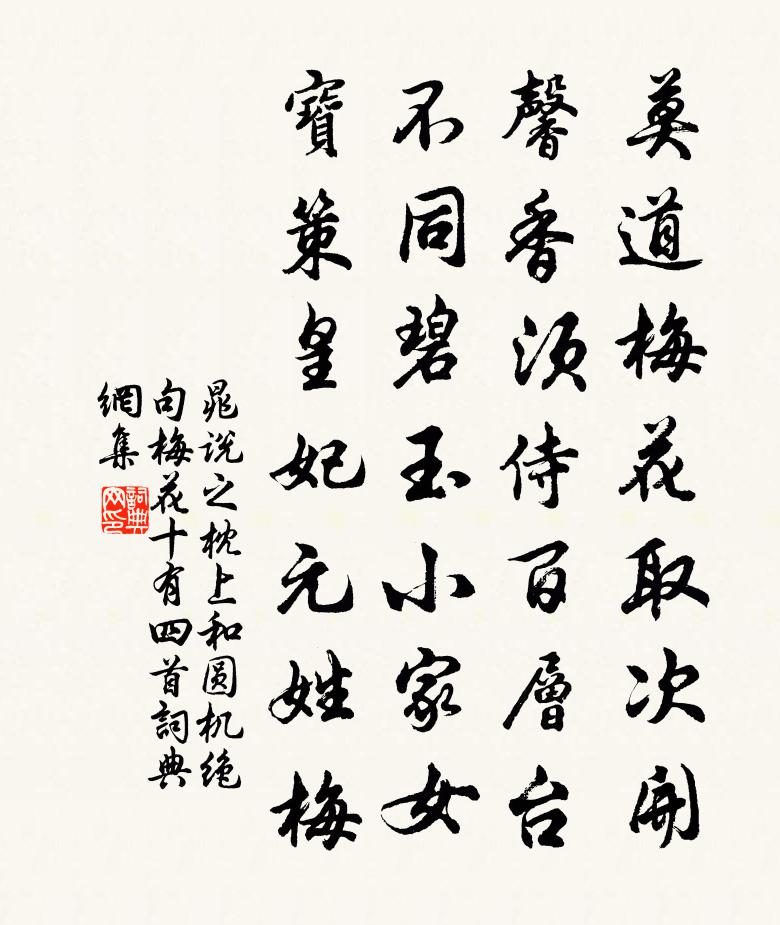 莫道梅花取次開
馨香須待百層台
不同碧玉小家女
寶策皇妃元姓梅
晁說之枕上和圓机絶
句梅花十有四首詞典
網集
詞典
网印